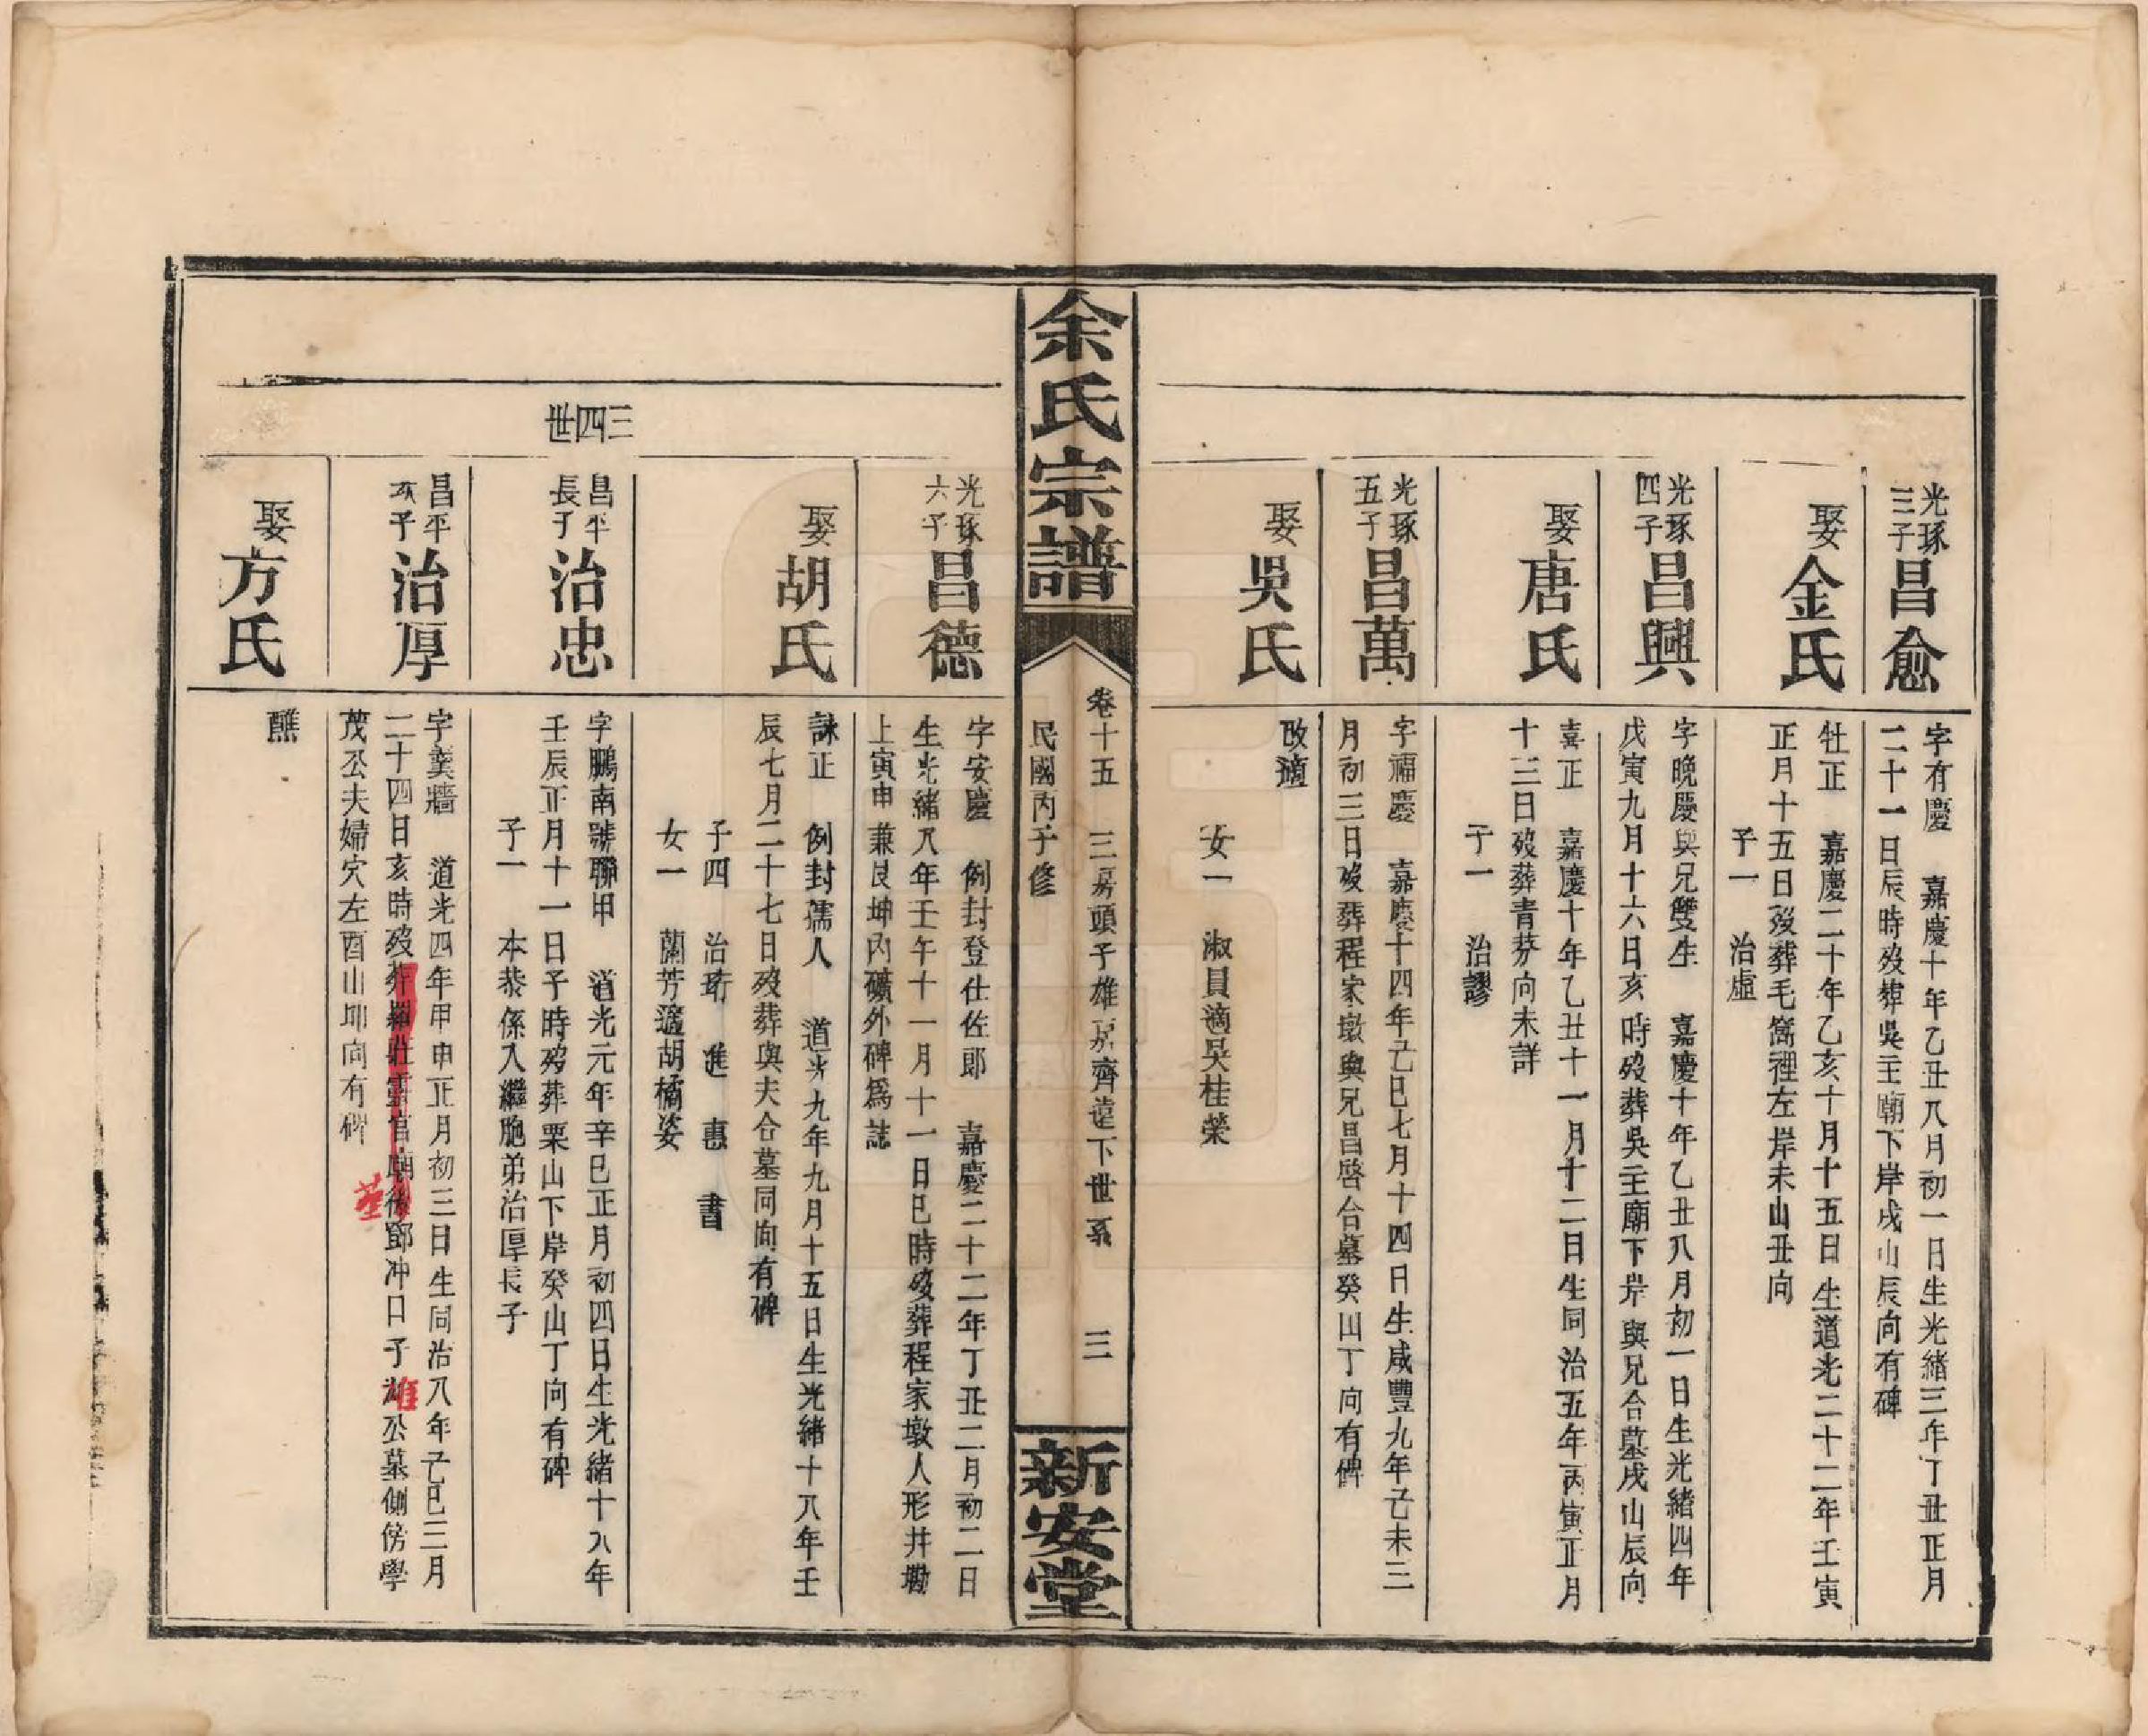 光琢
三子
昌愈
字有慶　嘉慶十年乙丑八月初一日生光緒三年丁丑正月
二十一日辰時歿葬吳王廟下岸戌山辰向有碑
娶
金氏
牡正　嘉慶二十年乙亥十月十五日生道光二十二年壬寅
正月十五日歿葬毛窩裡左岸未山丑向
子一　治虛
光琢
四子
昌興
字晚慶與兄雙生　嘉慶十年乙丑八月初一日生光緒四年
戊寅九月十六日亥時歿葬吳王廟下岸與兄合墓戌山辰向
娶
唐氏
喜正　嘉慶十年乙丑十一月十二日生同治五年丙寅正月
十三日歿葬青茅向未詳
子一　治謬
光琢
五子
昌萬
字福慶　嘉慶十四年己巳七月十四日生咸豐九年己未三
月初三日歿葬程家墩與兄昌啓合墓癸山丁向有碑
娶
吳氏
改適
女一　淑員適吳桂榮
余氏宗譜
卷十五　三房頭子雄房齊遠下世系　三
民國丙子修
新安堂
光琢
六子
昌德
字安慶　例封登仕佐郎　嘉慶二十二年丁丑二月初二日
生光緒八年壬午十一月十一日巳時歿葬程家墩人形井塝
上寅申兼艮坤內礦外碑爲誌
娶
胡氏
諫正　例封孺人　道光九年九月十五日生光緒十八年壬
辰七月二十七日歿葬與夫合墓同向有碑
子四　治琦　進　惠　書
女一　蘭芳適胡橘姿
三四世
昌平
長子
治忠
字鵬南號聯甲　道光元年辛巳正月初四日生光緒十八年
壬辰正月十一日子時歿葬栗山下岸癸山丁向有碑
子一　本恭係入繼胞弟治厚長子
昌平
次子
治厚
字羹牆　道光四年甲申正月初三日生同治八年己巳三月
二十四日亥時歿葬羅莊靈官廟後鄧冲口子雄公墓側傍學
茂公夫婦穴左酉山卯向有碑
娶
方氏
醮